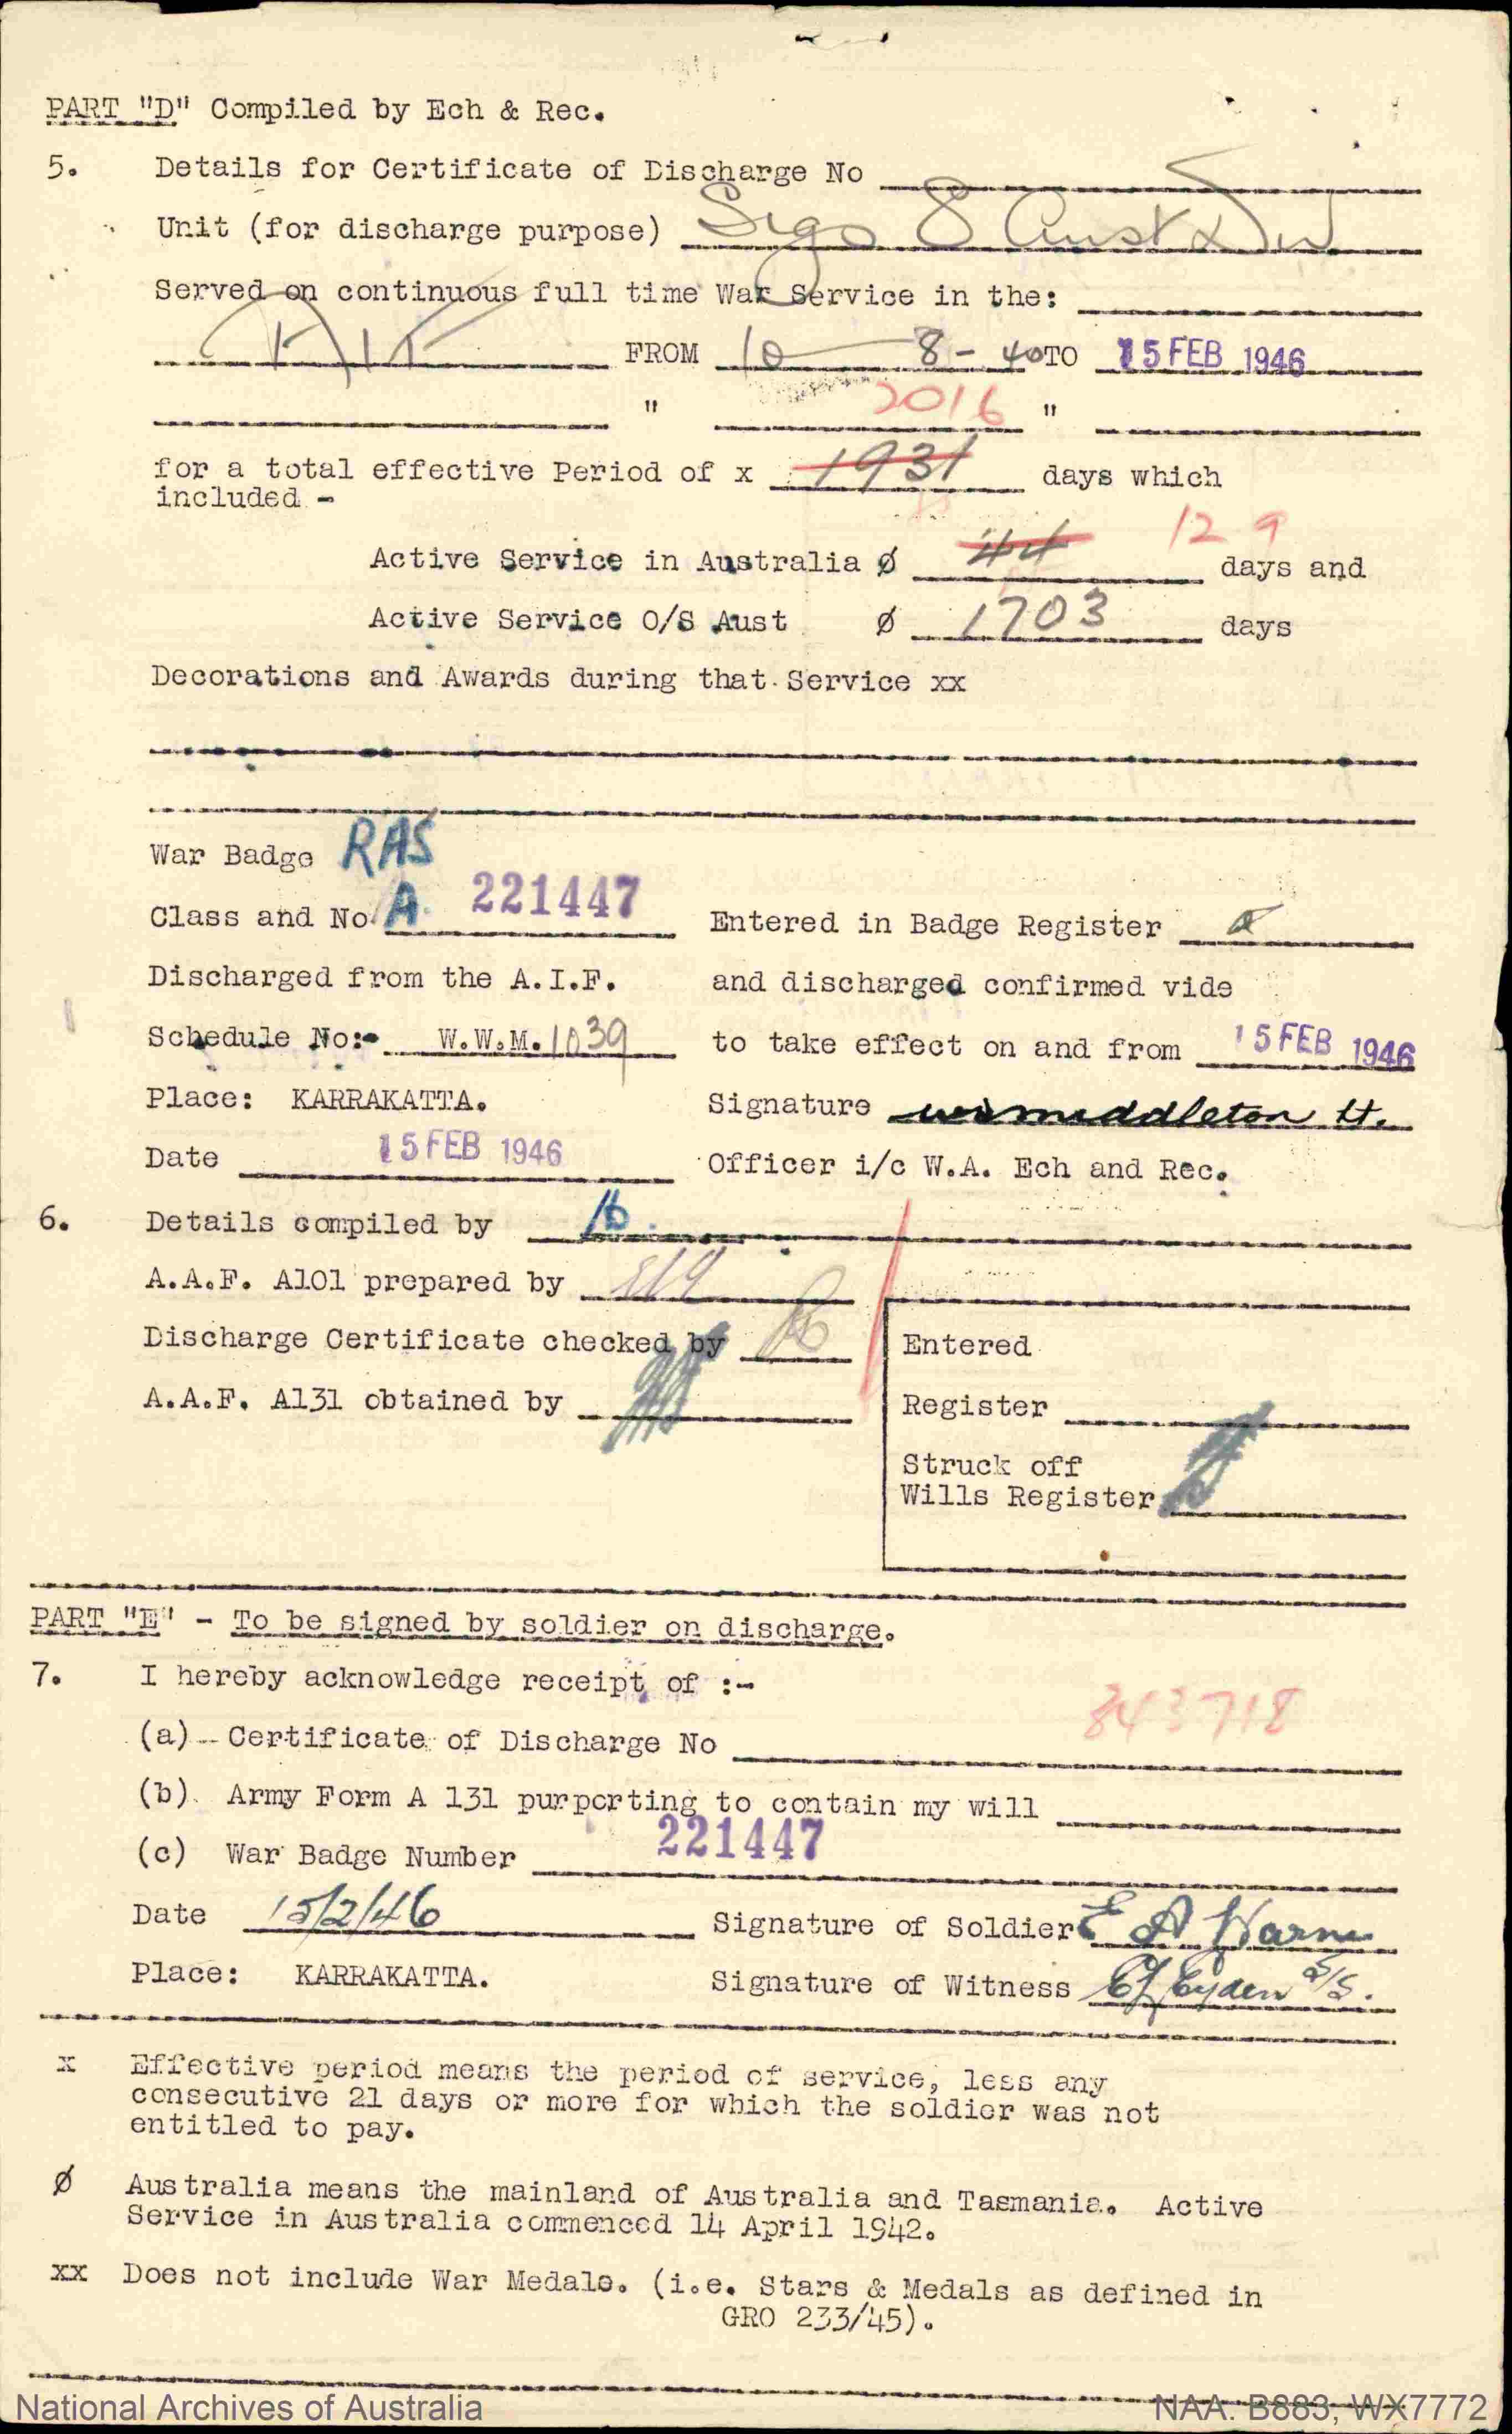 PART "D" Compiled by Ech & Rec.
5. Details for Certificate of Discharge No
Unit (for discharge purpose) Sigs 8 Aust Div
Served on continuous full time War Service in the:
AIF FROM 10 - 8 - 40 TO 15 FEB 1946
" 2016 "
for a total effective Period of x 1931 days which
included -
Active Service in Australia ø 44 129 days and
Active Service O/S Aust ø 1703 days
Decorations and Awards during that Service xx
War Badge RAS
Class and No. A 221447 Entered in Badge Register
Discharged from the A.I.F. and discharged confirmed vide
Schedule No:- W.W.M. 1039 to take effect on and from 15 FEB 1946
Place: KARRAKATTA. Signature middleton Lt.
Date 15 FEB 1946 Officer i/c W.A. Ech and Rec.
6. Details compiled by
A.A.F. A101 prepared by
Discharge Certificate checked by Entered
A.A.F. A131 obtained by Register
Struck off
Wills Register
PART "E" - To be signed by soldier on discharge.
7. I hereby acknowledge receipt of :-
843718
(a) Certificate of Discharge No
(b) Army Form A 131 purporting to contain my will
(c) War Badge Number 221447
Date 15/2/46 Signature of Soldier E A Warne
Place: KARRAKATTA. Signature of Witness S/S.
x Effective period means the period of service, less any
consecutive 21 days or more for which the soldier was not
entitled to pay.
ø Australia means the mainland of Australia and Tasmania. Active
Service in Australia commenced 14 April 1942.
xx Does not include War Medals. (i.e. Stars & Medals as defined in
GRO 233/45).
National Archives of Australia NAA: B883, WX7772